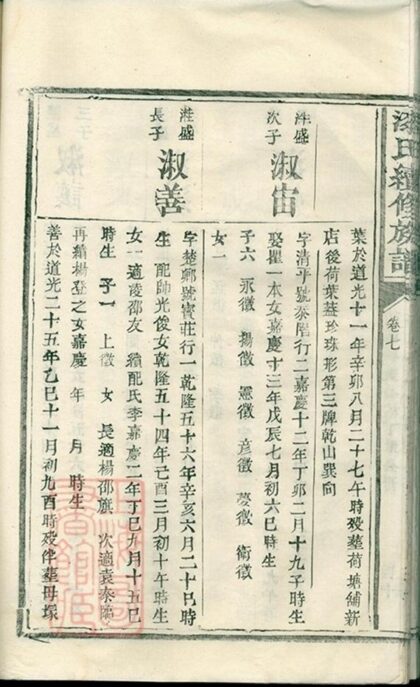 氏續修族譜
卷七
葉於道光十一年辛卯八月二十七午時歿塟荷塘舖新
店後荷葉蓋珍珠形第三牌乾山巽向
淮盛
次子
淑宙
字清平號泰階行二嘉慶十二年丁卯二月十九子時生
娶瞿一本女嘉慶十三年戊辰七月初六巳時生
子六 永徵 楊徵 憲徵 彥徵 夢徵 衛徵
女一
淮盛
長子
淑善
字楚卿號寳莊行一乾隆五十六年辛亥六月二十巳時
生 配帥光俊女乾隆五十四年己酉三月初十午時生
女一適陵邵友 續配氏李嘉慶二年丁巳九月十五巳
時生 子一 上徵 女 長適楊邵旗 次適袁泰臨
再續楊登之女嘉慶 年 月 時生
善於道光二十五年乙巳十一月初九酉時歿伴塟母塚